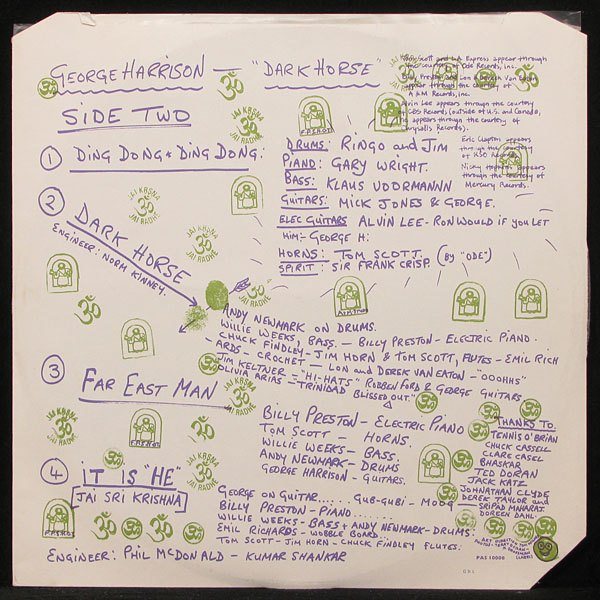 GEORGE HARRISON — "DARK HORSE"
SIDE TWO
① DING DONG * DING DONG:
DRUMS: RINGO and JIM
PIANO: GARY WRIGHT.
BASS: KLAUS VOORMANNN
GUITARS: MICK JONES & GEORGE.
ELEC GUITARS ALVIN LEE - RON WOULD IF YOU LET
HIM:- GEORGE H:
HORNS: TOM SCOTT. (BY "ODE")
SPIRIT: SIR FRANK CRISP.
Tom Scott and L.A. Express appear through
the courtesy of Ode Records, Inc.
appear through the courtesy of
A&M Records, Inc.
Alvin Lee appears through the courtesy
of CBS Records (outside of U.S. and Canada,
appears through the courtesy of
Chrysalis Records).
Eric Clapton appears
through the courtesy
of RSO Records.
Nicky Hopkins appears
through the courtesy of
Mercury Records.
② DARK HORSE
ENGINEER: NORM KINNEY.
ANDY NEWMARK ON DRUMS.
WILLIE WEEKS, BASS. — BILLY PRESTON - ELECTRIC PIANO.
CHUCK FINDLEY - JIM HORN & TOM SCOTT, FLUTES - EMIL RICH
- ARDS - CROCHET — LON and DEREK VAN EATON — "OOOHHS"
JIM KELTNER = "HI-HATS" ROBBEN FORD & GEORGE GUITARS
OLIVIA ARIAS - "TRINIDAD BLISSED OUT."
③ FAR EAST MAN
BILLY PRESTON - ELECTRIC PIANO
TOM SCOTT — HORNS.
WILLIE WEEKS — BASS.
ANDY NEWMARK - DRUMS
GEORGE HARRISON - GUITARS.
④ IT IS "HE"
JAI SRI KRISHNA
GEORGE ON GUITAR...... GUB-GUBI - MOOG
BILLY PRESTON - PIANO.........
WILLIE WEEKS - BASS + ANDY NEWMARK - DRUMS.
EMIL RICHARDS - WOBBLE BOARD.
TOM SCOTT - JIM HORN - CHUCK FINDLEY FLUTES.
ENGINEER: PHIL McDONALD - KUMAR SHANKAR
THANKS TO.
TENNIS O'BRIAN
CHUCK CASSELL
CLARE CASEL
BHASKAR
TED DORAN
JACK KATZ
JOHNATHAN CLYDE
DEREK TAYLOR and
SRIPAD MAHARAJ.
DOREEN DAHL
PAS 10008
JAI KRSNA
ॐ
JAI RADHE
F.P.S.H.O.T.